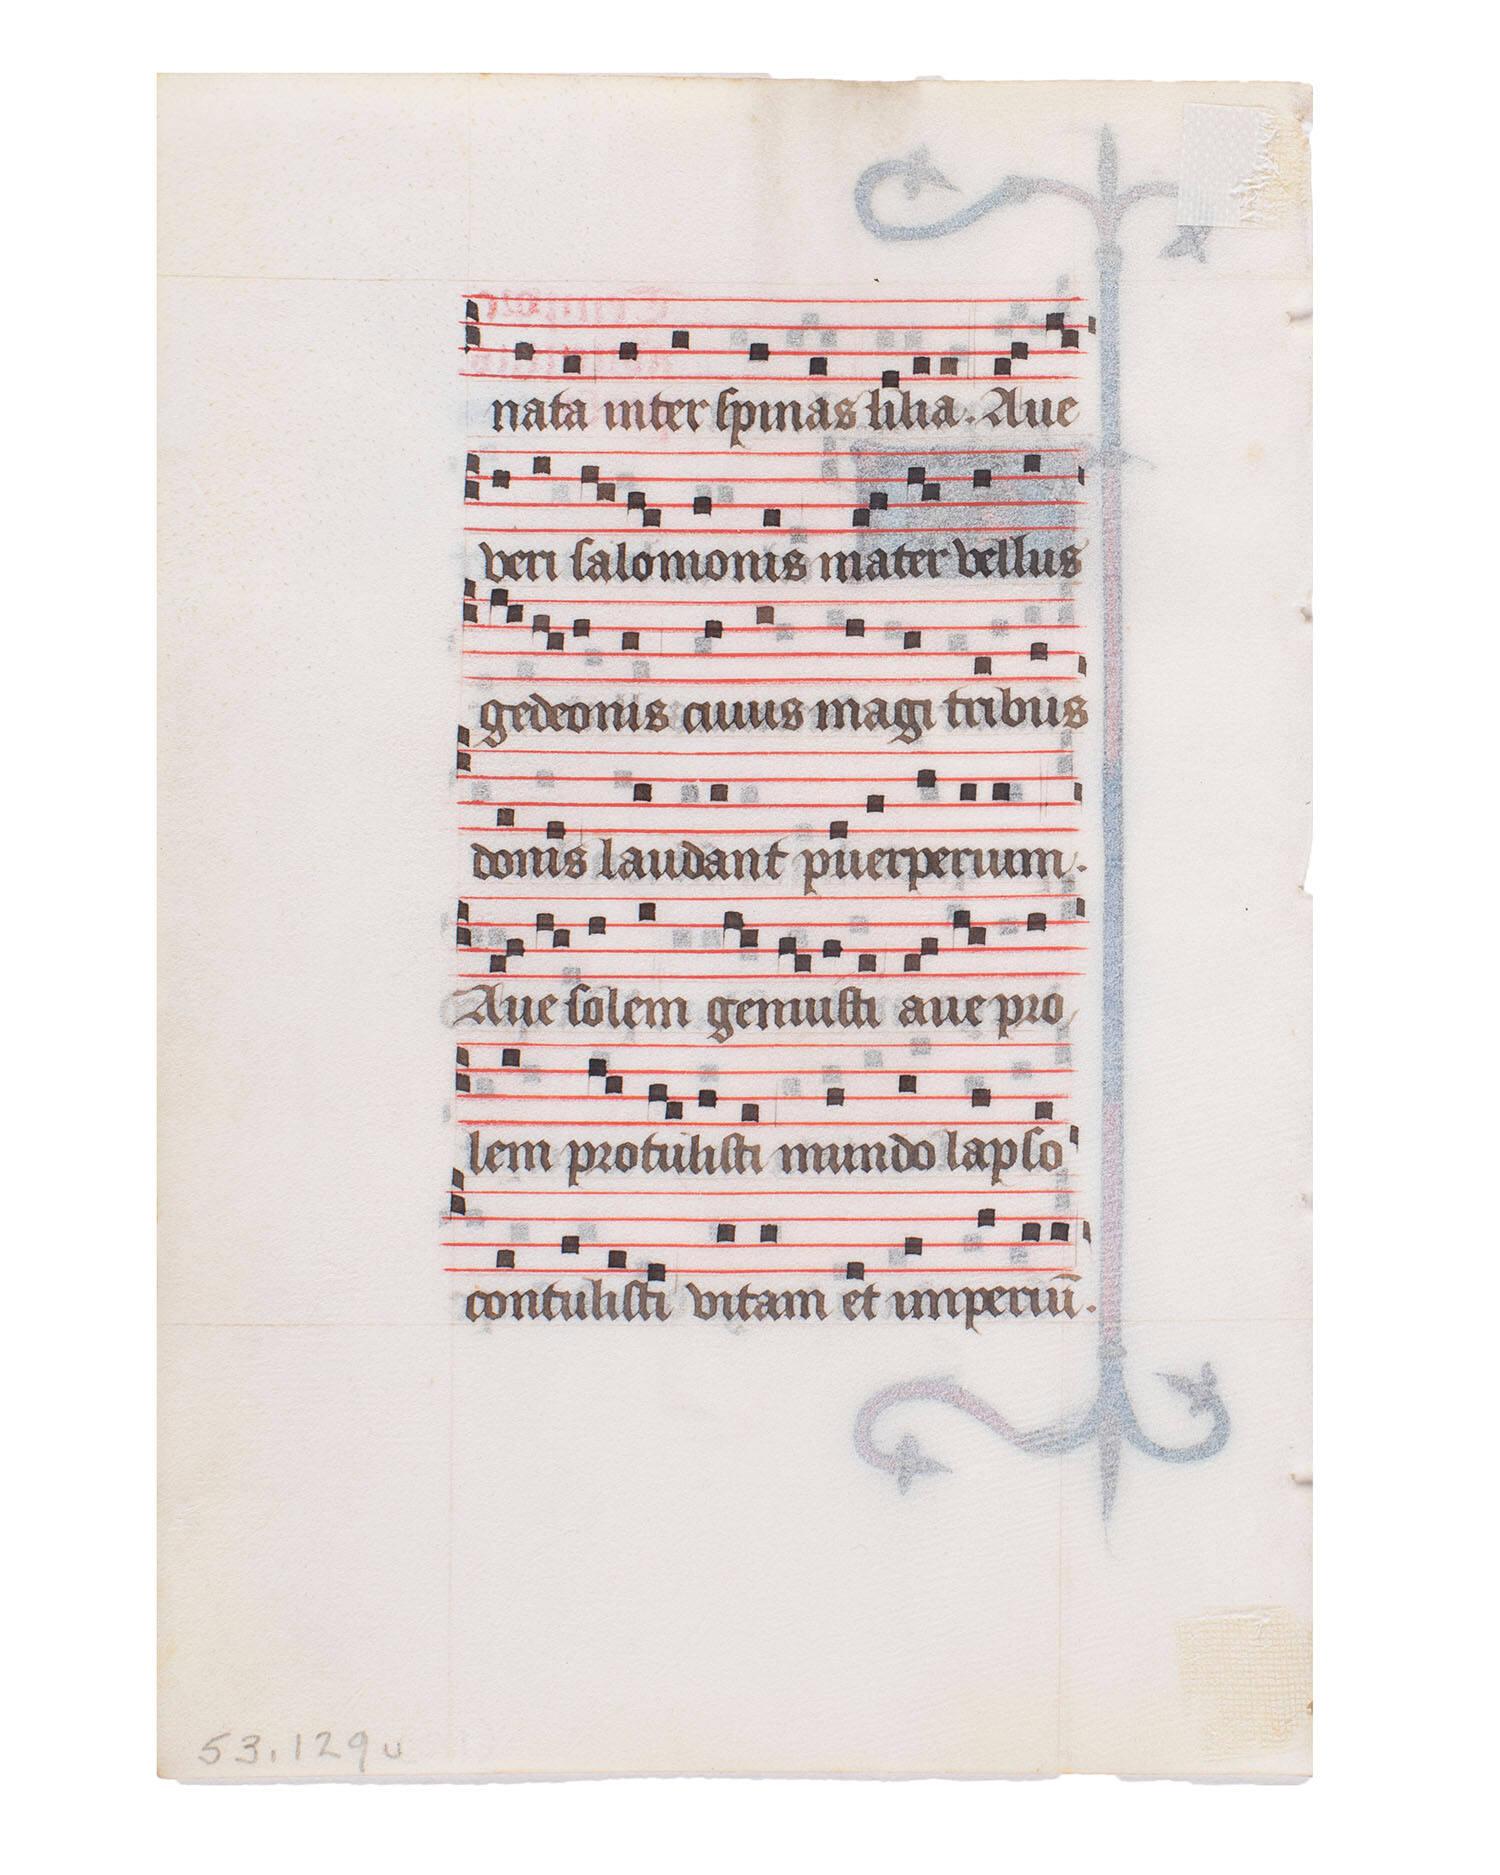 nata inter spinas lilia. Aue
veri salomonis mater vellus
gedeonis cuius magi tribus
donis laudant puerperium.
Aue solem genuisti aue pro
lem protulisti mundo lapso
contulisti vitam et imperiū.
53.129u